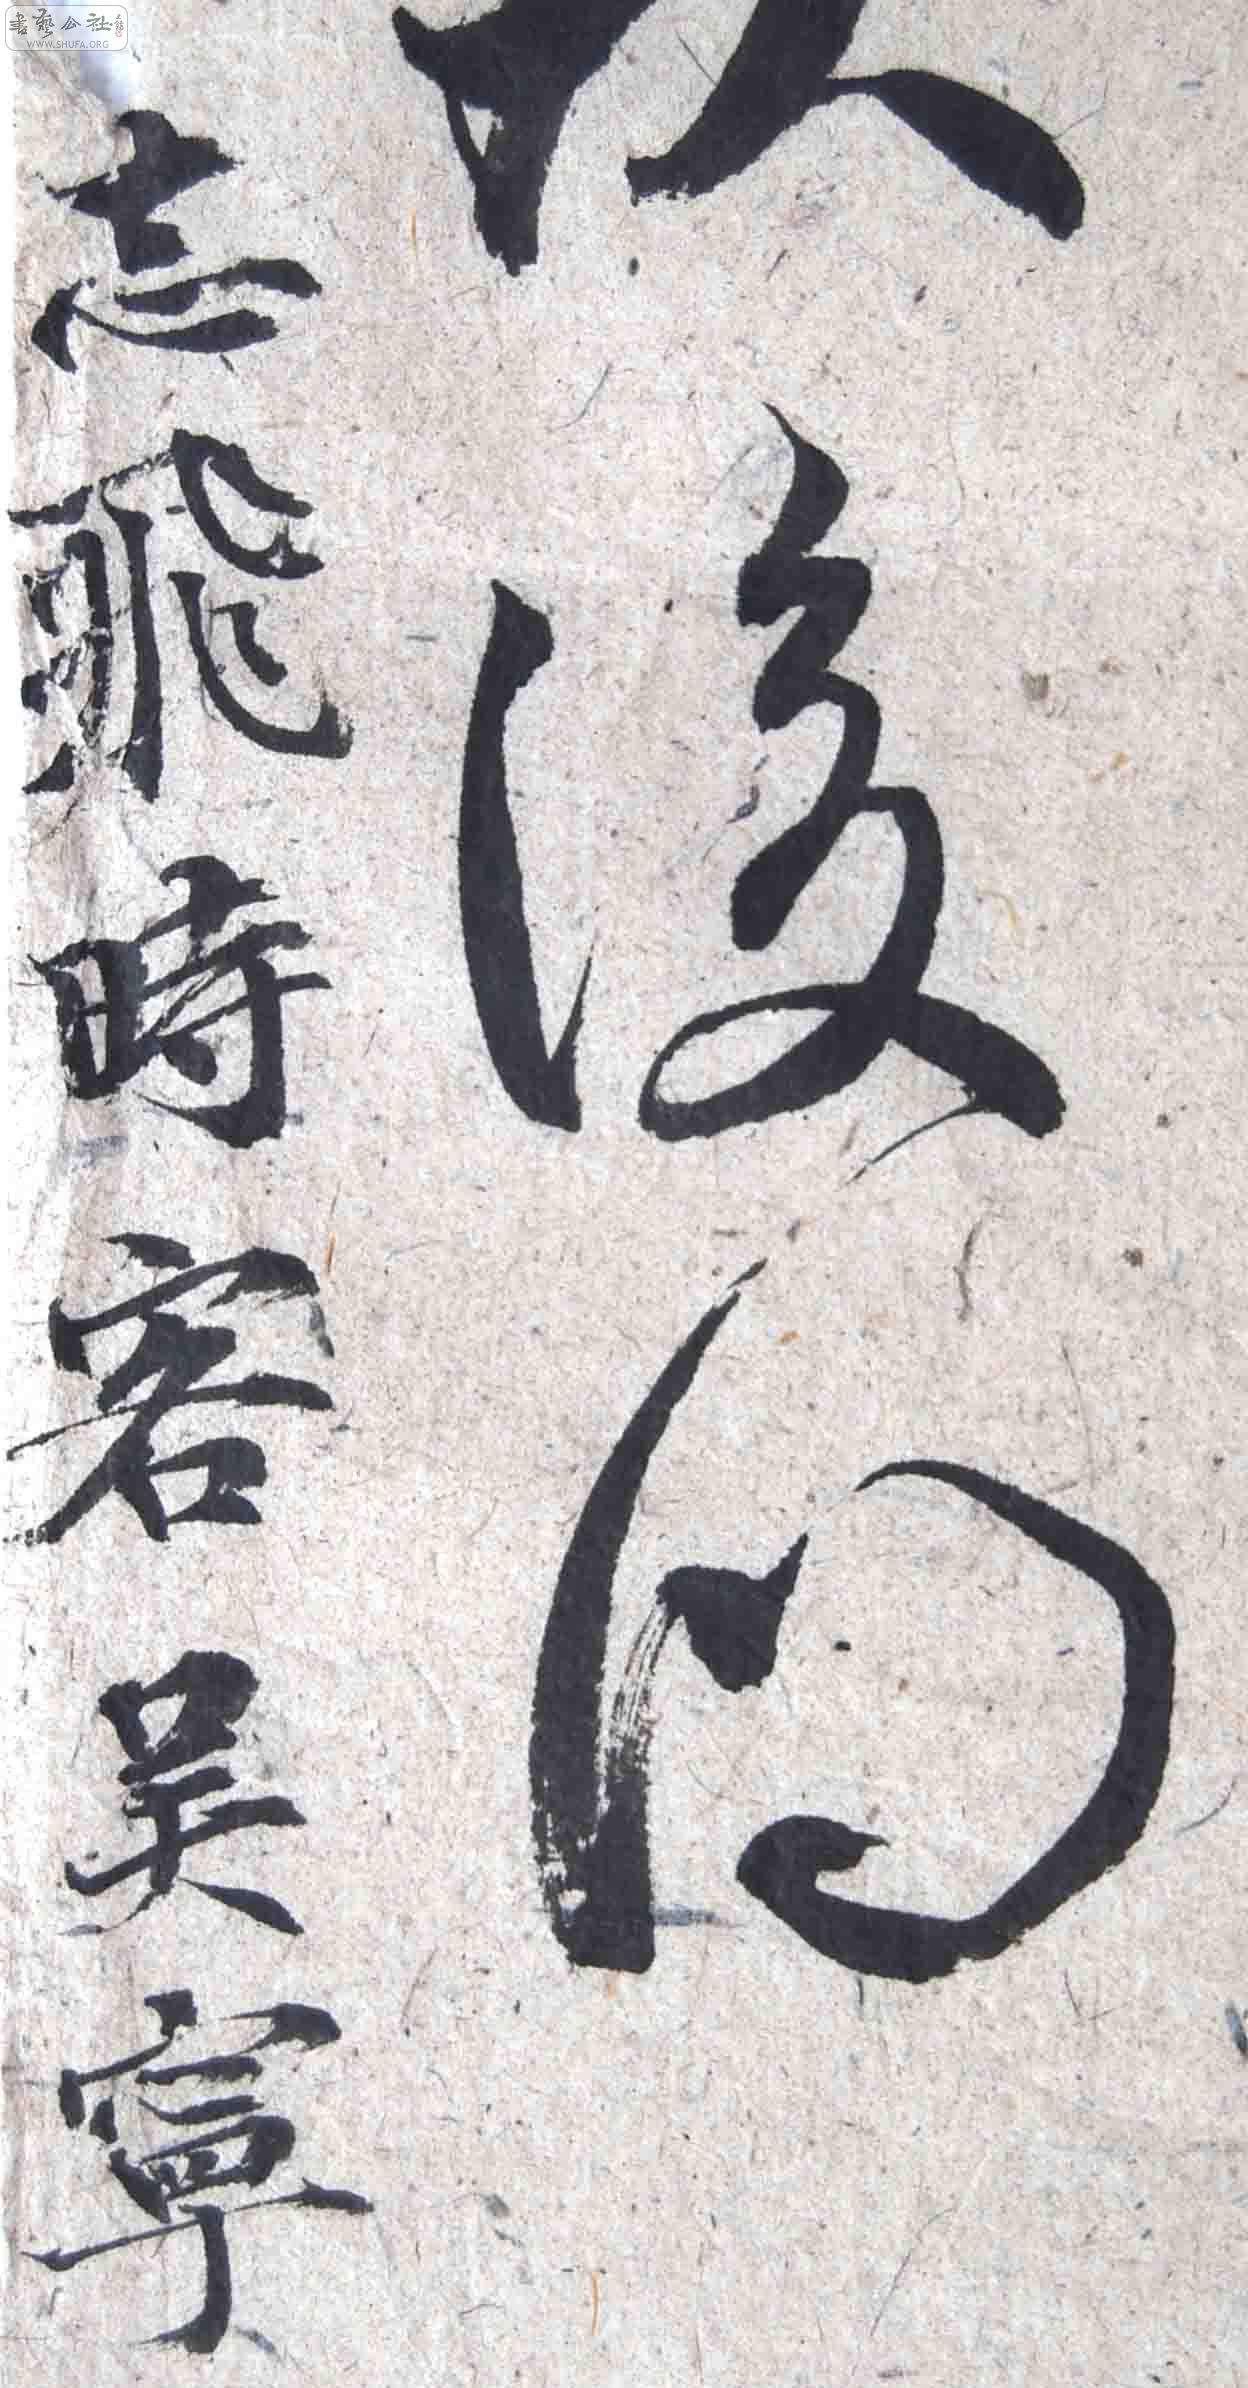 書藝公社
WWW.SHUFA.ORG
後向
志飛時客吴寧